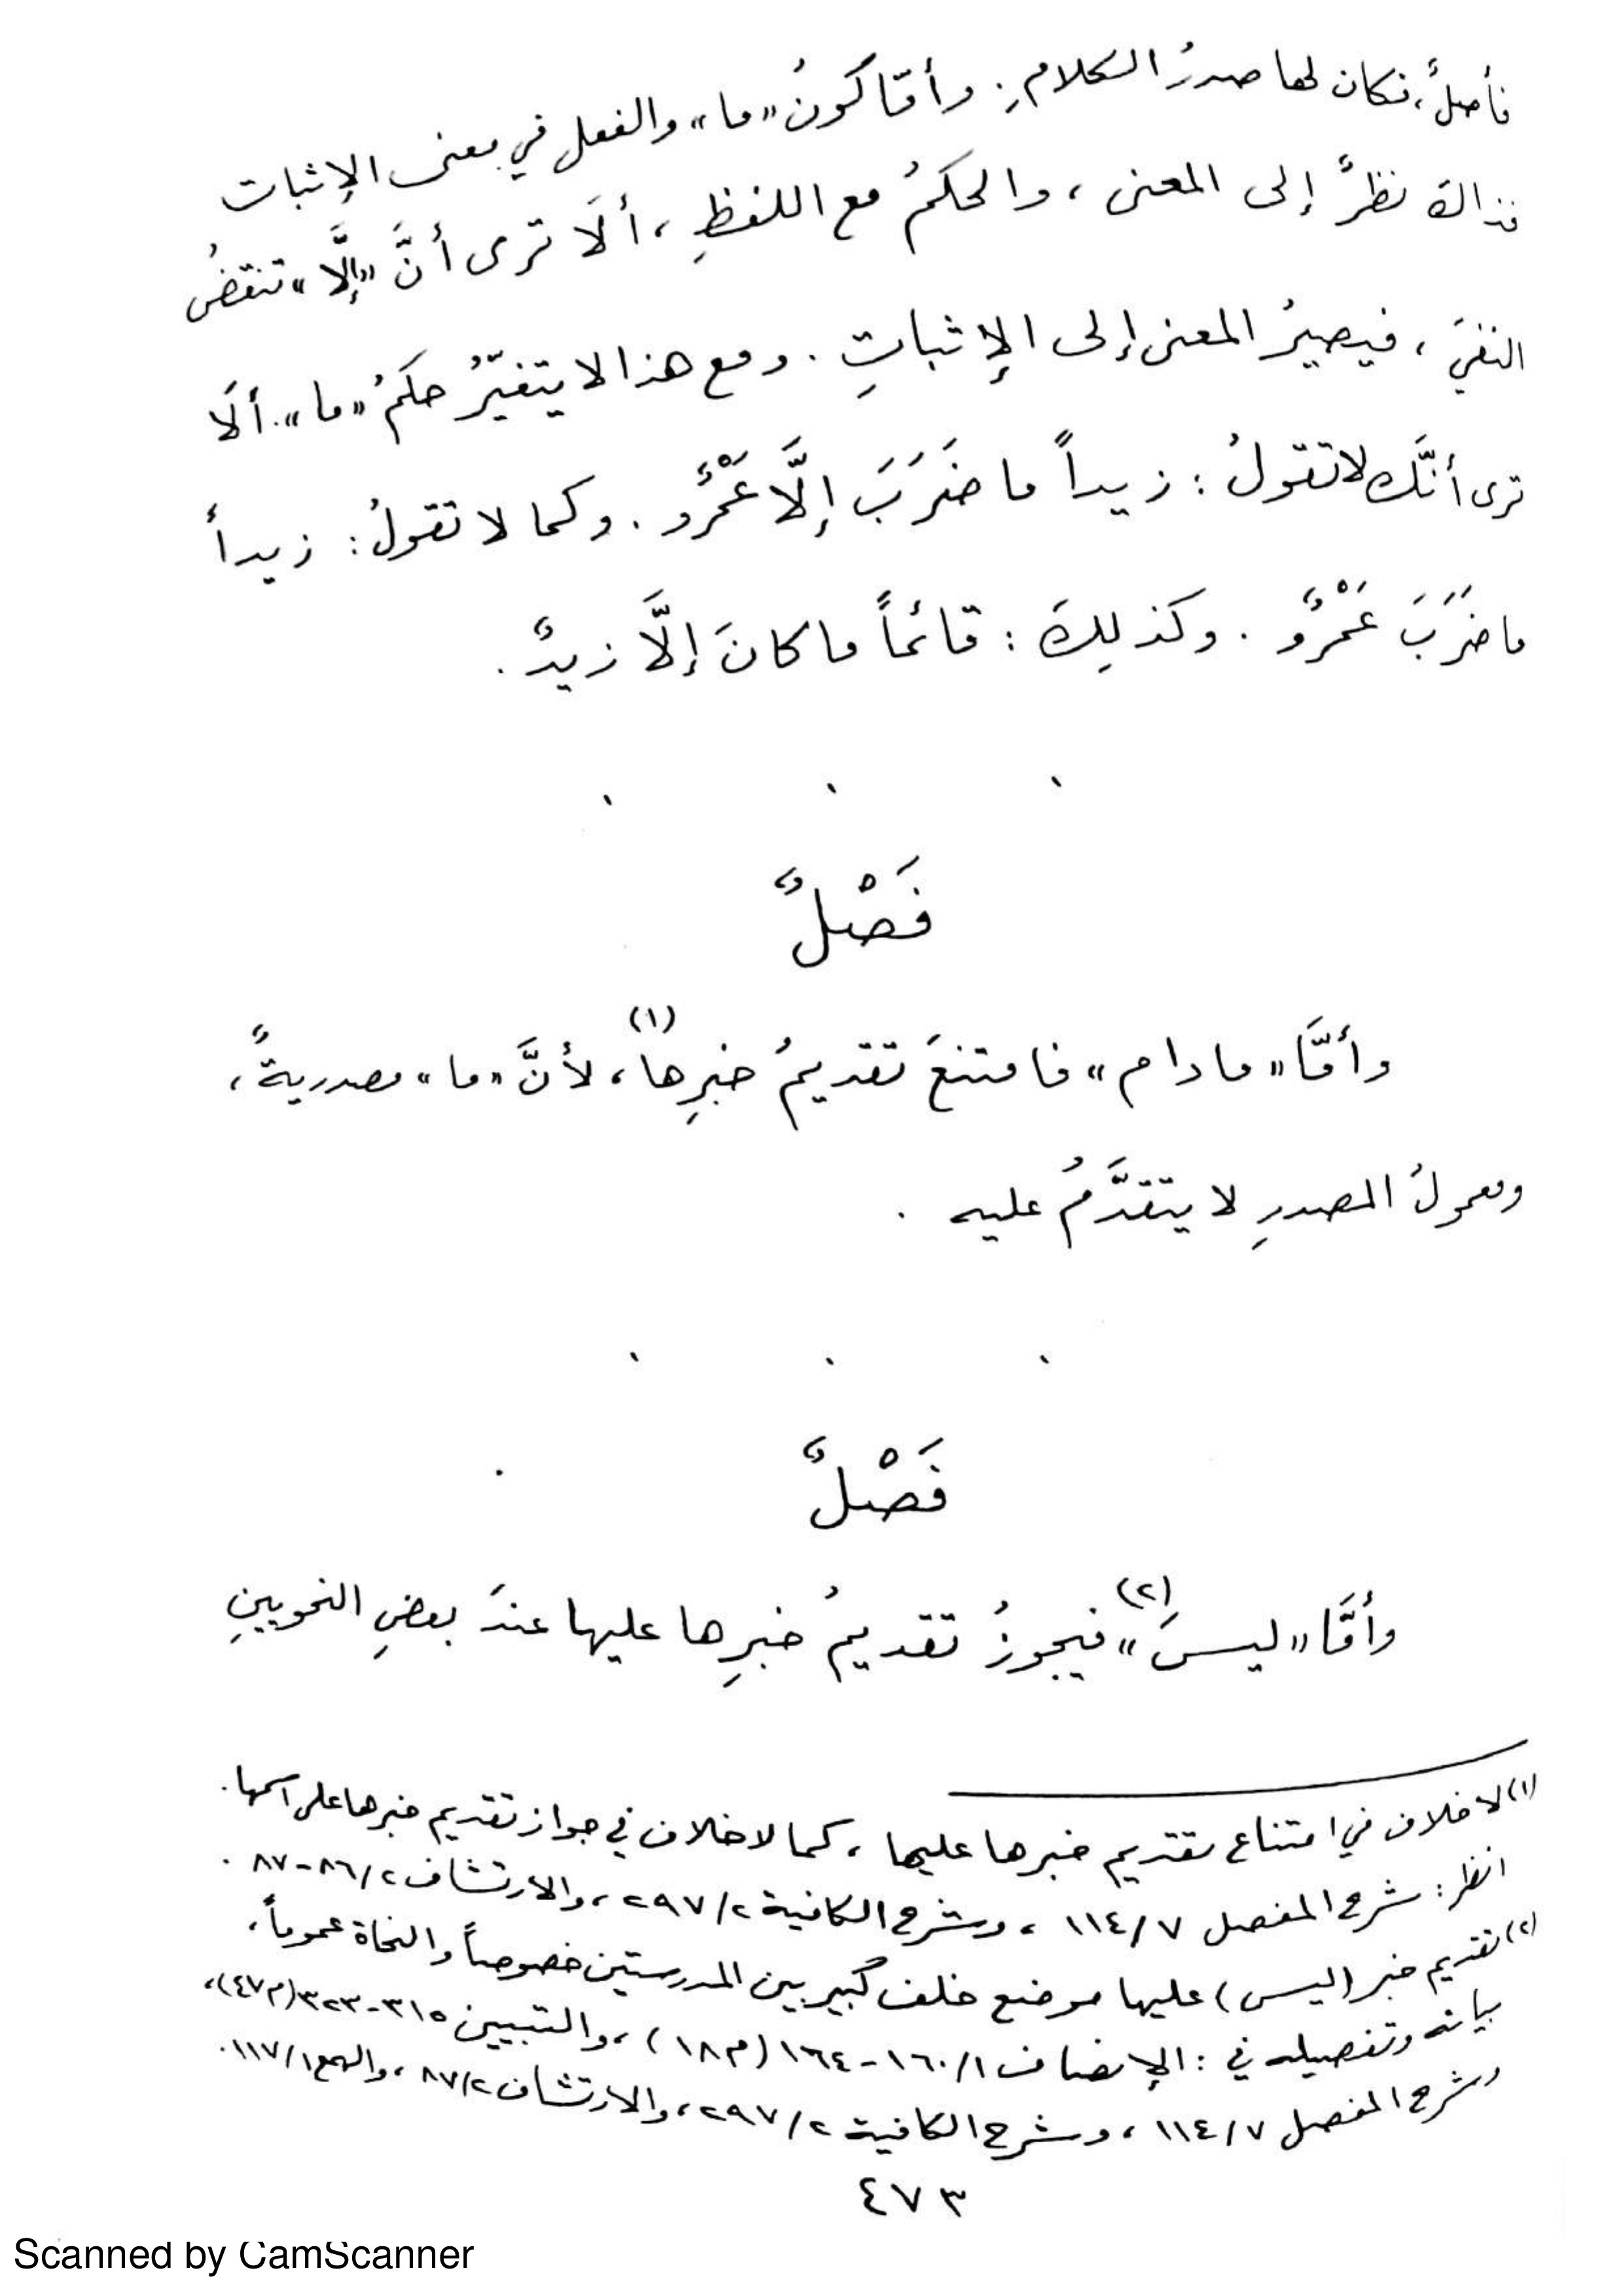 فأصلٌ، فكان لها صدرُ الكلامِ. وأمّا كونُ «ما» والفعل في معنى الإثبات
فذاك نظرٌ إلى المعنى، والحكمُ مع اللفظِ، ألَا ترى أنَّ «إلَّا» تنقضُ
النفيَ، فيصيرُ المعنى إلى الإثباتِ. ومع هذا لا يتغيّرُ حكمُ «ما». ألَا
ترى أنَّك لا تقولُ: زيداً ما ضَرَبَ إلَّا عَمْرٌو. وكما لا تقولُ: زيداً
ما ضَرَبَ عَمْرٌو. وكذلِكَ: قائماً ما كانَ إلَّا زيدٌ.
فَصْلٌ
وأمَّا «ما دام» فامتنعَ تقديمُ خبرِها(١)، لأنَّ «ما» مصدريةٌ،
ومعمولُ المصدرِ لا يتقدَّمُ عليه.
فَصْلٌ
وأمَّا «ليسَ»(٢) فيجوزُ تقديمُ خبرِها عليها عندَ بعضِ النحويينِ
(١) لا خلاف في امتناع تقديم خبرها عليها، كما لا خلاف في جواز تقديم خبرها على اسمها.
انظر: شرح المفصل ١١٤/٧، وشرح الكافية ٢٩٧/٢، والارتشاف ٨٦/٢-٨٧.
(٢) تقديم خبر (ليس) عليها موضع خلف كبير بين المدرستين خصوصاً والنحاة عموماً،
بيانه وتفصيله في: الإنصاف ١٦٠/١-١٦٤ (م١٨)، والتبيين ٣١٥-٣٢٣ (م٤٧)،
وشرح المفصل ١١٤/٧، وشرح الكافية ٢٩٧/٢، والارتشاف ٨٧/٢، والهمع ١١٧/١.
٤٧٣
Scanned by CamScanner